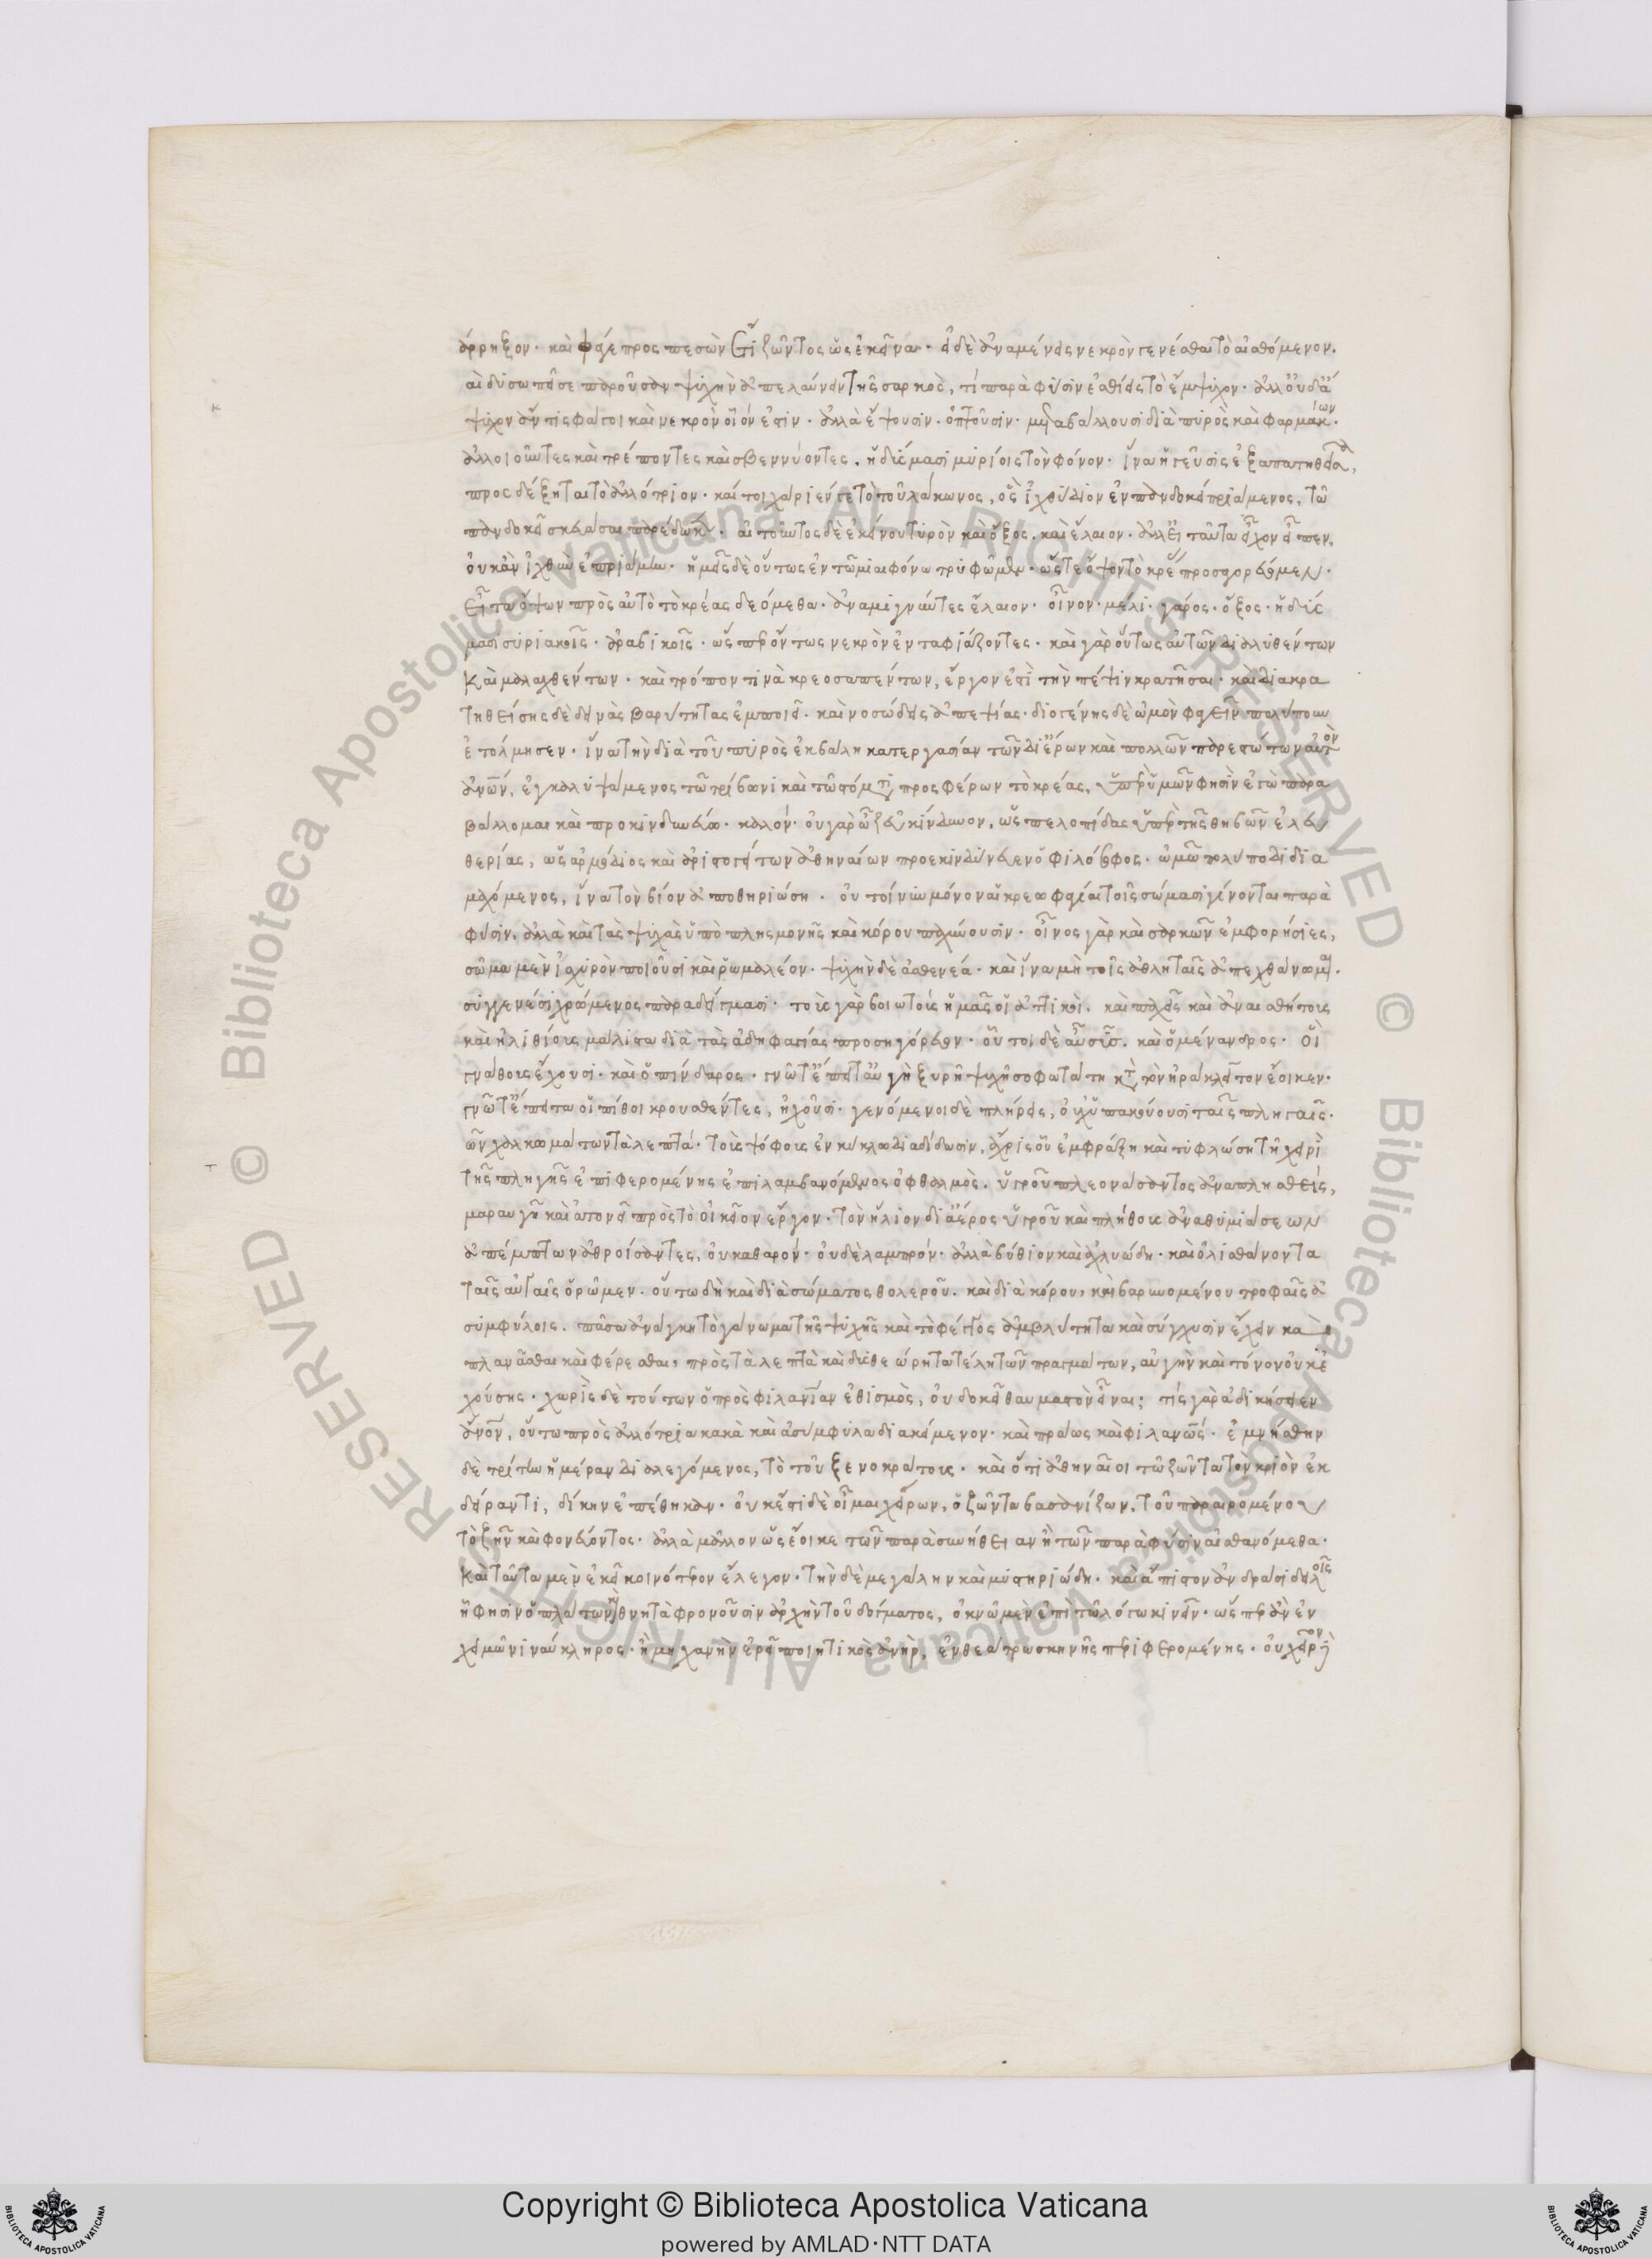 άρρηξον· καὶ φάγε προσπεσὼν ἔτι ζῶντος ὡς ἐκεῖνα· εἰ δὲ ἀναμένεις νεκρὸν γενέσθαι τὸ αἰσθόμενον.
αἰδύσωπεῖσε παροῦσαν ψυχὴν ἀπελαύνειν τῆς σαρκὸς, τί παρὰ φύσιν ἐσθίεις τὸ ἔμψυχον· ἀλλ' οὐδ' ἄ
ψυχον ἄν τις φάγοι καὶ νεκρὸν οἷόν ἐστιν· ἀλλὰ ἕψουσιν· ὀπτῶσιν· μεταβάλλουσι διὰ πυρὸς καὶ φαρμάκων·
ἀλλοιοῦντες καὶ τρέποντες καὶ σβεννύοντες. ἡδύσμασι μυρίοις τὸν φόνον· ἵνα ἡ γεῦσις ἐξαπατηθεῖσα,
προσδέξηται τὸ ἀλλότριον· καίτοι χαρίεν γε τὸ τοῦ λάκωνος, ὃς ἰχθύδιον ἐν πανδοκείῳ πριάμενος, τῶ
πανδοκεῖ σκευάσαι παρέδωκεν· αἰτοῦντος δὲ ἐκείνου τυρὸν καὶ ὄξος. καὶ ἔλαιον· ἀλλ' εἰ ταῦτα εἶχον εἶπεν,
οὐκ ἂν ἰχθὺν ἐπριάμην· ἡμεῖς δὲ οὕτως ἐν τῶ μιαιφόνω τρυφῶμεν· ὥστε ὄψον τὸ κρέας προσαγορεύομεν·
εἶτα ὄψων πρὸς αὐτὸ τὸ κρέας δεόμεθα· ἀναμιγνύντες ἔλαιον· οἶνον· μέλι· γάρος· ὄξος· ἡδύσ
μασι συριακοῖς· ἀραβικοῖς· ὥσπερ ὄντως νεκρὸν ἐνταφιάζοντες· καὶ γὰρ οὕτως αὐτῶν διαλυθέντων
καὶ μαλαχθέντων· καὶ τρόπον τινὰ κρεοσαπέντων, ἔργον ἐστὶ τὴν πέψιν κρατῆσαι· καὶ διακρα
τηθείσης δὲ δεινὰς βαρύτητας ἐμποιεῖ· καὶ νοσώδεις ἀπεψίας· διογένης δὲ ὠμὸν φαγεῖν πολύπουν
ἐτόλμησεν· ἵνα τὴν διὰ τοῦ πυρὸς ἐκβάλη κατεργασίαν τῶν ἱερέων καὶ πολλῶν παρεστώτων αὐτὸν
ἀνων, ἐγκαλυψάμενος τῶ τρίβωνι καὶ τῶ στόματι προσφέρων τὸ κρέας, ὑπὲρ ὑμῶν φησὶν ἐγὼ παρα
βάλλομαι καὶ προκινδυνεύω· καλόν· οὐ γὰρ ὦ ζεῦ κίνδυνον, ὡς πελοπίδας ὑπὲρ τῆς θηβῶν ἐλευ
θερίας, ὡς ἁρμόδιος καὶ ἀριστογείτων ἀθηναίων προεκινδύνευεν ὁ φιλόσοφος· ὠμῶ πολύποδι δια
μαχόμενος, ἵνα τὸν βίον ἀποθηριώση. οὐ τοίνυν μόνον αἱ κρεωφαγίαι τοῖς σώμασι γίνονται παρὰ
φύσιν, ἀλλὰ καὶ τὰς ψυχὰς ὑπὸ πλησμονῆς καὶ κόρου παχύνουσιν· οἶνος γὰρ καὶ σαρκῶν ἐμφορήσιες,
σῶμα μὲν ἰσχυρὸν ποιοῦσι καὶ ῥωμαλέον· ψυχὴν δὲ ἀσθενέα· καὶ ἵνα μὴ τοῖς ἀθληταῖς ἀπεχθάνωμαι.
συγγενέσι χρώμενος παραδείγμασι· τοὺς γὰρ βοιωτοὺς ἡμᾶς οἱ ἀττικοὶ. καὶ παχεῖς καὶ ἀναισθήτους
καὶ ἠλιθίους μάλιστα διὰ τὰς ἀδηφαγίας προσηγόρευον· οὗτοι δὲ αὖ συς. καὶ ὁ μένανδρος· οἳ
γνάθους ἔχουσι· καὶ ὁ πίνδαρος· γνῶτ' ἔπειτα αὐγὴ ξυρὴ ψυχὴ σοφωτάτη κατὰ τὸν ἡράκλειτον ἔοικεν·
γνῶτ' ἔπειτα οἱ πίθοι κρουσθέντες, ἠχοῦσι· γενόμενοι δὲ πλήρεις, οὐχ ὑπακούουσι ταῖς πληγαῖς·
ὧν χαλκωμάτων τὰ λεπτά· τοὺς ψόφους ἐν κύκλω διαδίδωσιν, ἄχρις οὗ ἐμφράξη καὶ τυφλώση τῆ χειρὶ
τῆς πληγῆς ἐπιφερομένης ἐπιλαμβανόμενος ὀφθαλμὸς. ὑγροῦ πλεονάσαντος ἀναπλησθεὶς,
μαραυγεῖ καὶ ἀτονεῖ πρὸς τὸ οἰκεῖον ἔργον· τὸν ἥλιον δι' ἀέρος ὑγροῦ καὶ πλήθους ἀναθυμιάσεων
ἀπέπτων ἀθροίσαντες, οὐ καθαρόν· οὐδὲ λαμπρόν· ἀλλὰ βύθιον καὶ ἀχλυώδη· καὶ ὀλισθάνοντα
ταῖς αὐγαῖς ὁρῶμεν· οὕτω δὴ καὶ διὰ σώματος θολεροῦ. καὶ διὰ κόρου, καὶ βαρυνομένου τροφαῖς ἀ
συμφύλοις. πᾶσα ἀνάγκη τὸ γάνωμα τῆς ψυχῆς καὶ τὸ φέγγος ἀμβλύτητα καὶ σύγχυσιν ἔχειν καὶ
πλανᾶσθαι καὶ φέρεσθαι, πρὸς τὰ λεπτὰ καὶ δυσθεώρητα τέλη τῶν πραγμάτων, αὐγὴν καὶ τόνον οὐκ ἐ
χούσης· χωρὶς δὲ τούτων ὁ πρὸς φιλανίαν ἐθισμὸς, οὐ δοκεῖ θαυμαστὸν εἶναι; τίς γὰρ ἀδικήσειεν
ἄνον, οὕτω πρὸς ἀλλότρια κακὰ καὶ ἀσύμφυλα διακείμενον· καὶ πράως καὶ φιλανως· ἐμνήσθην
δὲ τρίτην ἡμέραν διαλεγόμενος, τὸ τοῦ ξενοκράτους· καὶ ὅτι ἀθηναῖοι τῶ ζῶντα τὸν κριὸν ἐκ
δείραντι, δίκην ἐπέθηκαν· οὐκ ἔστι δὲ οἶμαι χείρων, ὁ ζῶντα βασανίζων, τοῦ παραιρουμένου
τὸ ζῆν καὶ φονεύοντος· ἀλλὰ μᾶλλον ὡς ἔοικε τῶν παρὰ συνήθειαν ἢ τῶν παρὰ φύσιν αἰσθανόμεθα·
καὶ ταῦτα μὲν ἐκεῖ κοινότερον ἔλεγον· τὴν δὲ μεγάλην καὶ μυστηριώδη· καὶ ἄπιστον ἀνδράσι δειλοῖς
ἧ φησὶν ὁ πλάτων θνητὰ φρονοῦσιν ἀρχὴν τοῦ δόγματος, ὀκνῶ μὲν ἔτι τῶ λόγω κινεῖν· ὥσπερ ἂν ἐν
χειμῶνι ναύκληρος· ἢ μηχανὴν αἴρει ποιητικὸς ἀνὴρ, ἐν θεάτρω σκηνῆς περιφερομένης· οὐ χεῖρον